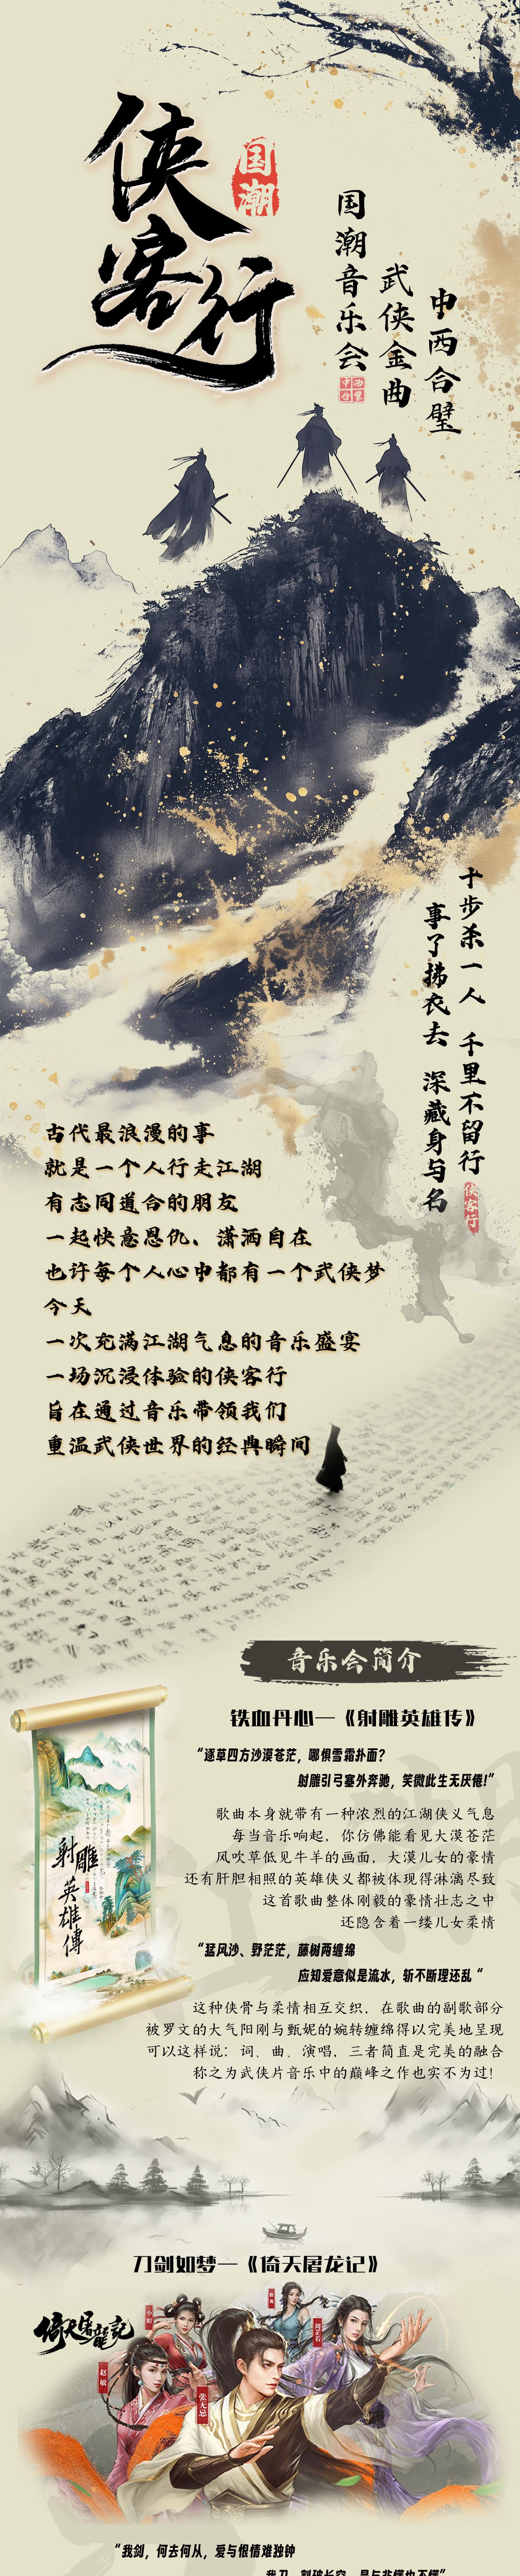 侠客行
国潮
中西合璧
武侠金曲
国潮音乐会
中西合璧
十步杀一人 千里不留行
事了拂衣去 深藏身与名
侠客行
古代最浪漫的事
就是一个人行走江湖
有志同道合的朋友
一起快意恩仇、潇洒自在
也许每个人心中都有一个武侠梦
今天
一次充满江湖气息的音乐盛宴
一场沉浸体验的侠客行
旨在通过音乐带领我们
重温武侠世界的经典瞬间
音乐会简介
铁血丹心—《射雕英雄传》
“逐草四方沙漠苍茫，哪惧雪霜扑面？
射雕引弓塞外奔驰，笑微此生无厌倦！”
歌曲本身就带有一种浓烈的江湖侠义气息
每当音乐响起，你仿佛能看见大漠苍茫
风吹草低见牛羊的画面，大漠儿女的豪情
还有肝胆相照的英雄侠义都被体现得淋漓尽致
这首歌曲整体刚毅的豪情壮志之中
还隐含着一缕儿女柔情
射雕英雄傳
“猛风沙、野茫茫，藤树两缠绵
应知爱意似是流水，斩不断理还乱“
这种侠骨与柔情相互交织，在歌曲的副歌部分
被罗文的大气阳刚与甄妮的婉转缠绵得以完美地呈现
可以这样说：词、曲、演唱，三者简直是完美的融合
称之为武侠片音乐中的巅峰之作也实不为过！
刀剑如梦—《倚天屠龙记》
倚天屠龍記
小昭
周芷若
赵敏
张无忌
“我剑，何去何从，爱与恨情难独钟
我刀，割破长空，是与非懂也不懂”